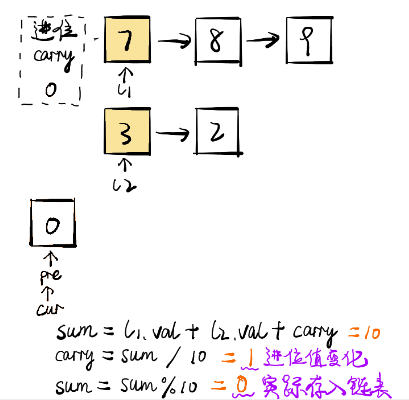 进位
carry
0
7 8 9
l1
3 2
l2
0
pre
cur
sum = l1.val + l2.val + carry = 10
carry = sum / 10 = 1 进位值变化
sum = sum % 10 = 0 实际存入链表